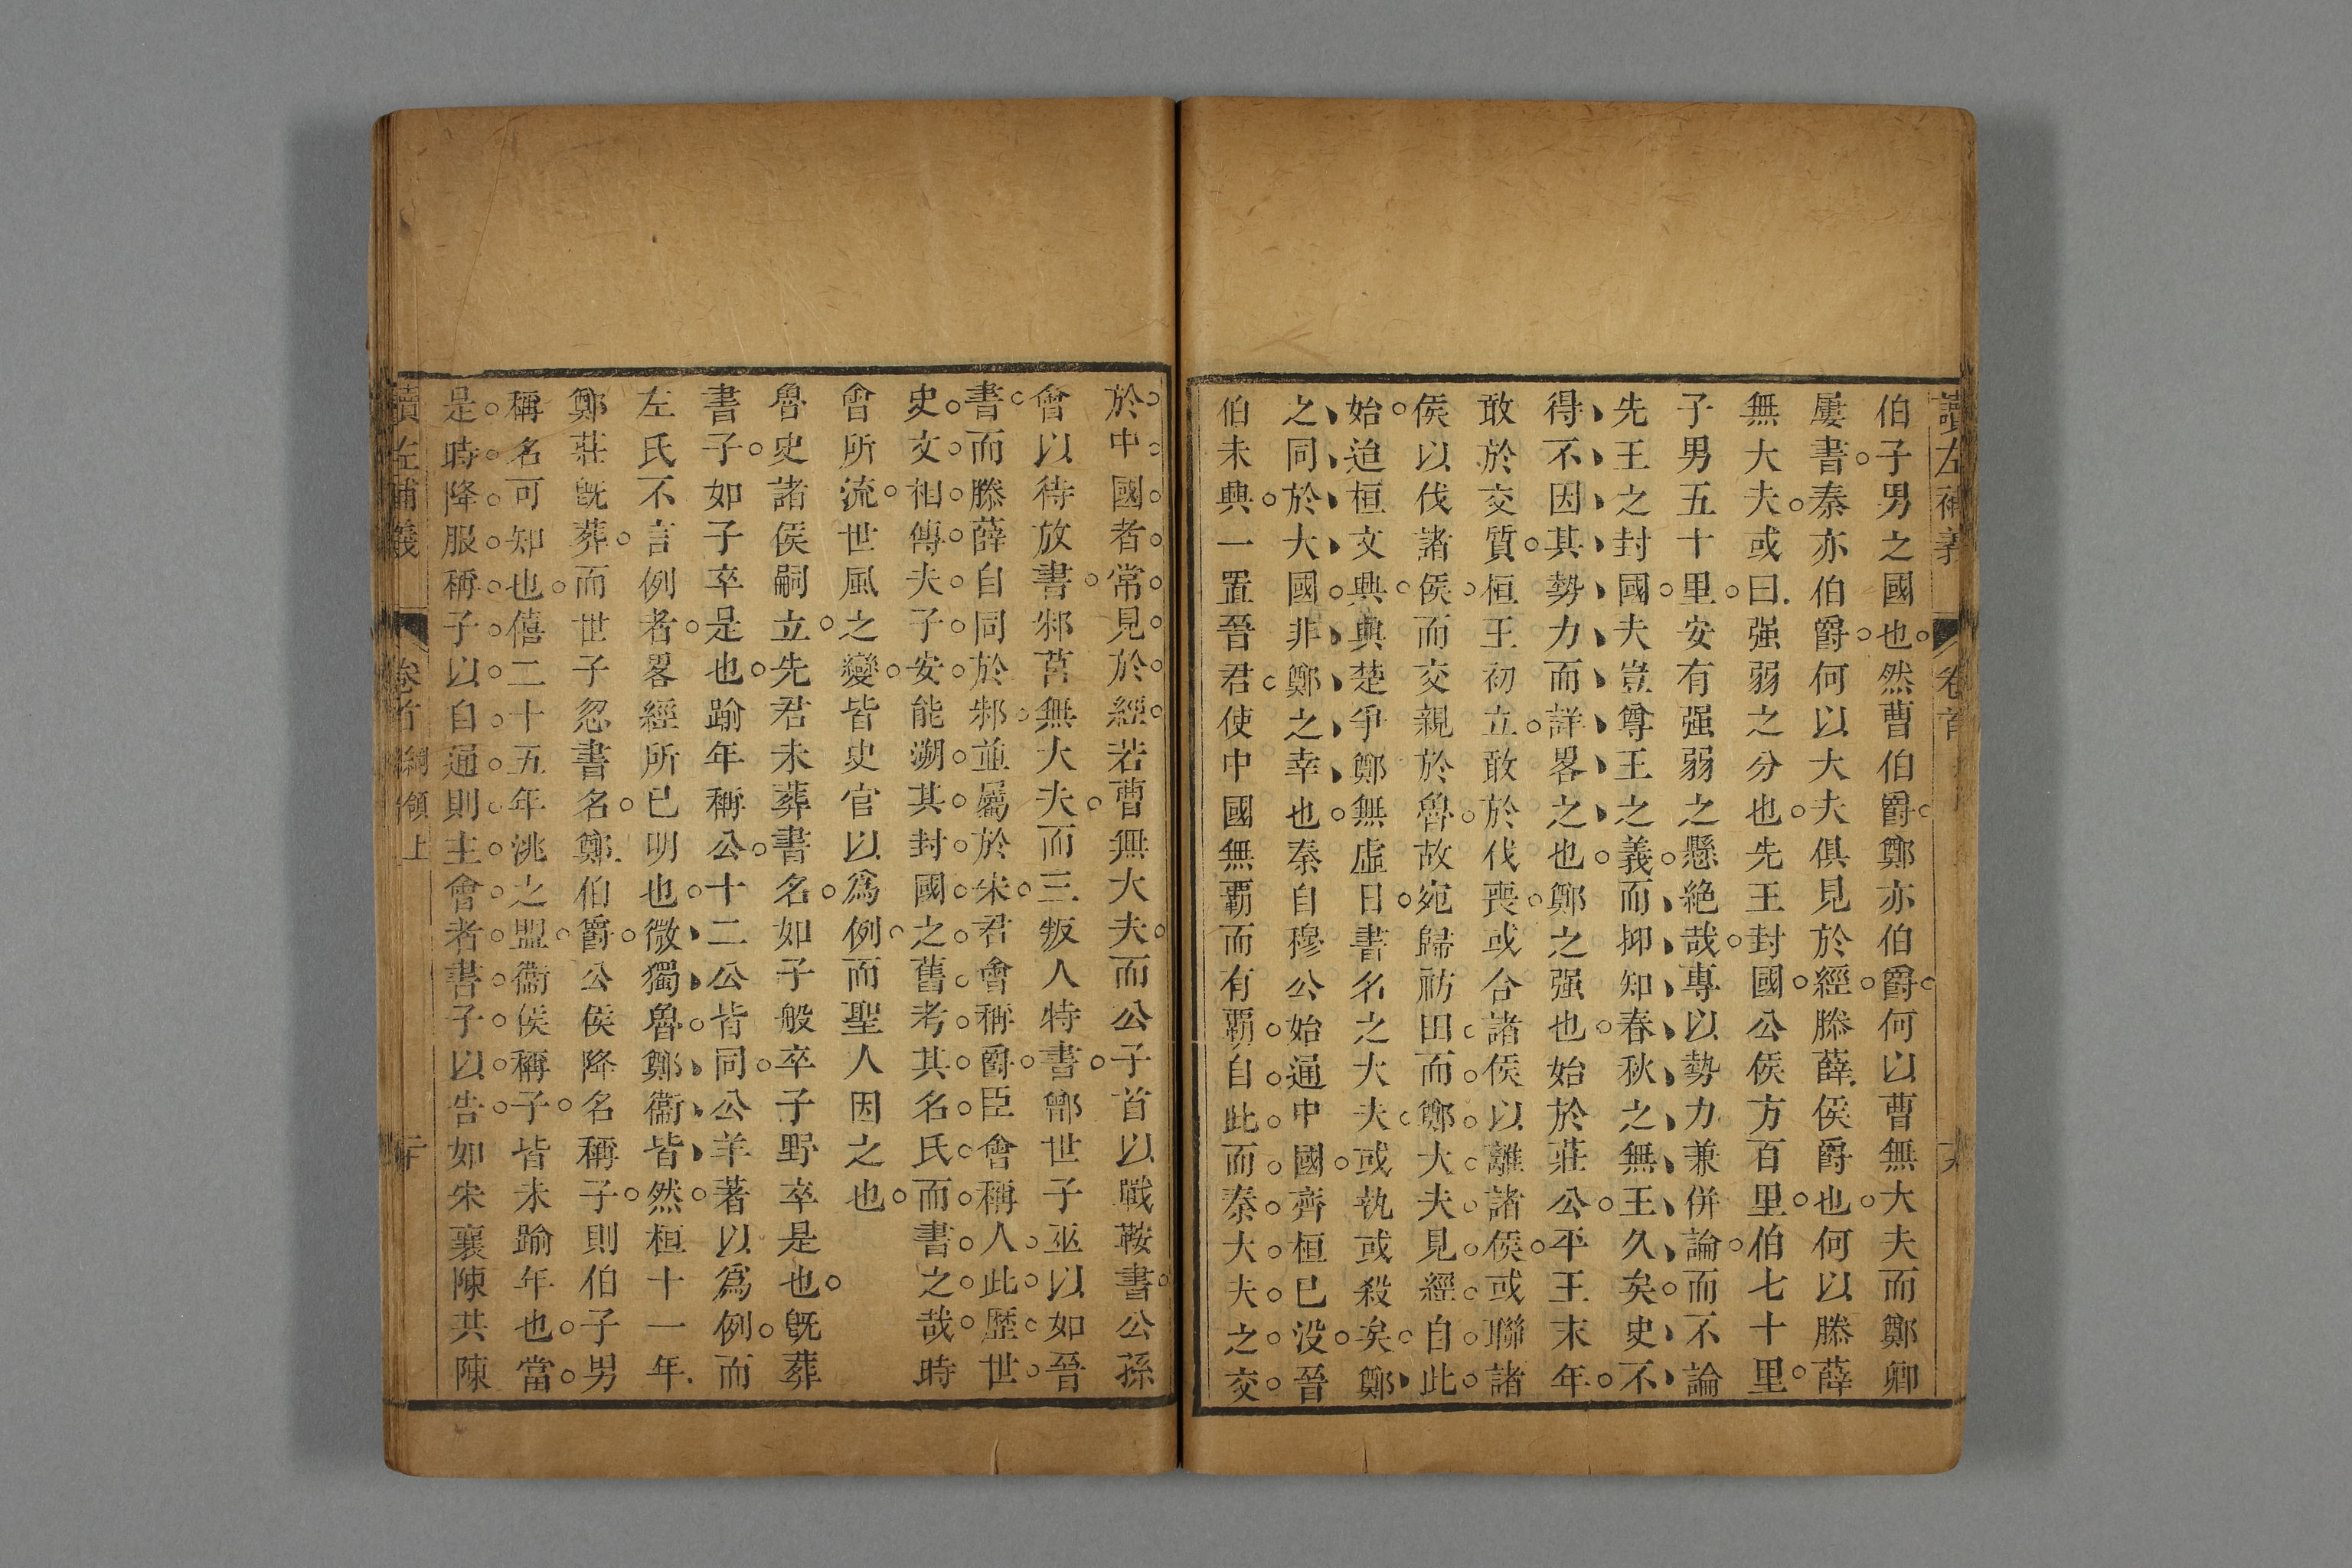 讀左補義 卷首
伯子男之國也然曹伯爵鄭亦伯爵何以曹無大夫而鄭卿
屢書秦亦伯爵何以大夫俱見於經滕薛侯爵也何以滕薛
無大夫或曰強弱之分也先王封國公侯方百里伯七十里
子男五十里安有强弱之懸絕哉專以勢力兼併論而不論
先王之封國夫豈尊王之義而抑知春秋之無王久矣史不
得不因其勢力而詳畧之也鄭之强也始於莊公平王末年
敢於交質桓王初立敢於伐喪或合諸侯以離諸侯或聯諸
侯以伐諸侯而交親於魯故宛歸祊田而鄭大夫見經自此
始迨桓文興與楚爭鄭無虛日書名之大夫或執或殺矣鄭
之同於大國非鄭之幸也秦自穆公始通中國齊桓已没晉
伯未興一置晉君使中國無覇而有覇自此而秦大夫之交
於中國者常見於經若曹無大夫而公子首以戰鞍書公孫
會以待放書邾莒無大夫而三叛人特書鄫世子巫以如晉
書而滕薛自同於邾並屬於宋君會稱爵臣會稱人此歷世
史文相傳夫子安能溯其封國之舊考其名氏而書之哉時
會所流世風之變皆史官以爲例而聖人因之也
魯史諸侯嗣立先君未葬書名如子般卒子野卒是也旣葬
書子如子卒是也踰年稱公十二公皆同公羊著以爲例而
左氏不言例者畧經所已明也微獨魯鄭衞皆然桓十一年
鄭莊旣葬而世子忽書名鄭伯爵公侯降名稱子則伯子男
稱名可知也僖二十五年洮之盟衞侯稱子皆未踰年也當
是時降服稱子以自通則主會者書子以告如宋襄陳共陳
讀左補義 卷首 綱領上 二十